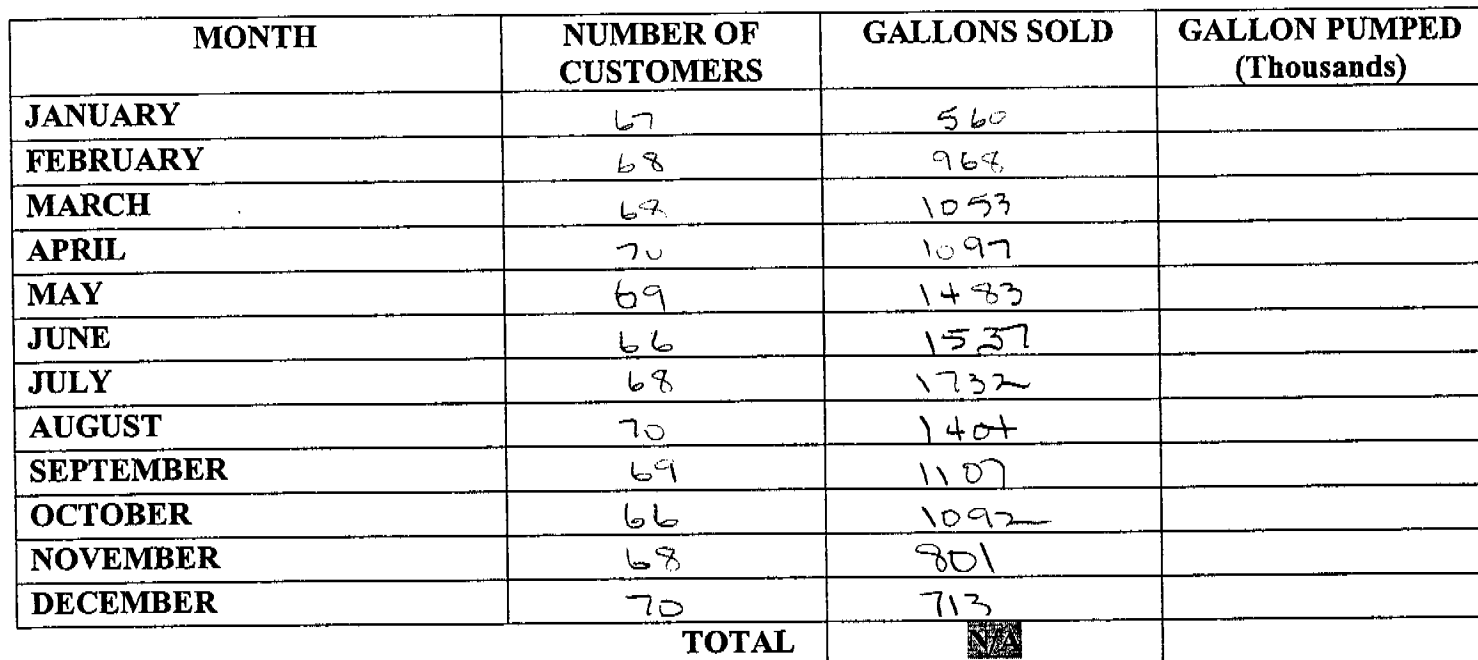 MONTH NUMBER OF CUSTOMERS GALLONS SOLD GALLON PUMPED (Thousands)
JANUARY 67 560
FEBRUARY 68 968
MARCH 68 1053
APRIL 70 1097
MAY 69 1483
JUNE 66 1537
JULY 68 1732
AUGUST 70 1404
SEPTEMBER 69 1107
OCTOBER 66 1092
NOVEMBER 68 801
DECEMBER 70 713
TOTAL N/A